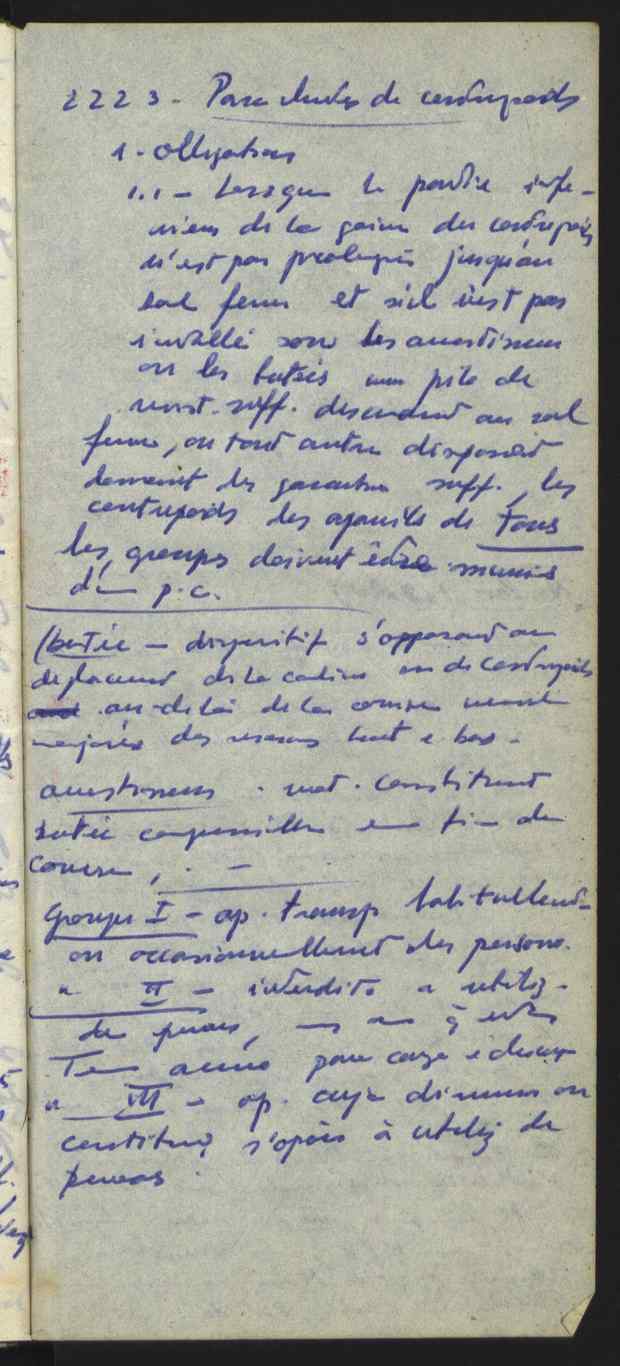 2223 - Parachutes de contrepoids
1 - obligations
1.1 - Lorsque la partie infé-
rieure de la gaine du contrepoids
n'est pas prolongée jusqu'au
sol ferme et s'il n'est pas
installé sous les amortisseurs
ou les butées une pile de
résist. suff. descendant au sol
ferme, ou tout autre dispositif
donnant des garanties suff., les
contrepoids des appareils de tous
les groupes doivent être munis
d'un p.c.
(butée - dispositif s'opposant au
déplacement de la cabine ou de contrepoids
au-delà de la course
majorée des réserves haut e bas.
amortisseurs . mat. constituant
butée compressible en fin de
course, . -
Groupe I - ap. transp habituellemt
ou occasionnellement des person.
" II - interdits a utilis.
de pers,
accès pour
" III - ap. dimens ou
constituç s'opose à utiliz de
persoas.